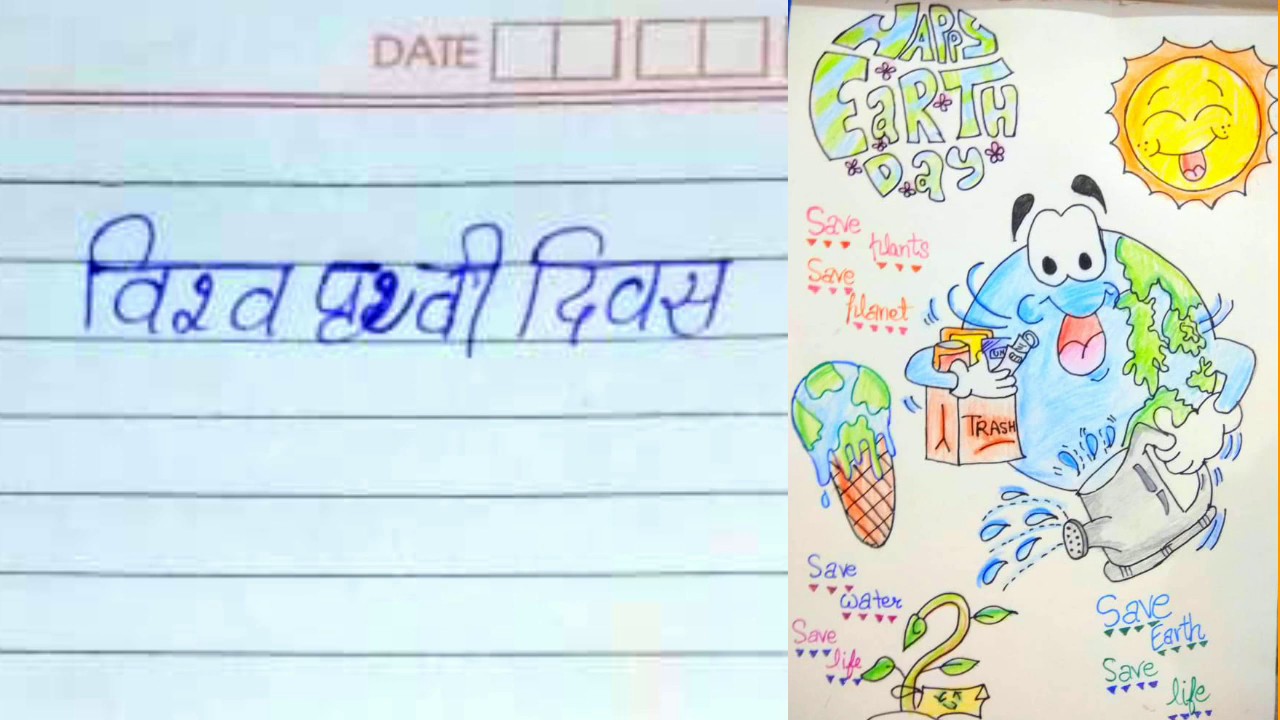 DATE
विश्व पृथ्वी दिवस
HAPPY
EaRTH
DAY
Save
plants
Save
planet
TRASH
Save
water
Save
life
Save
Earth
Save
life